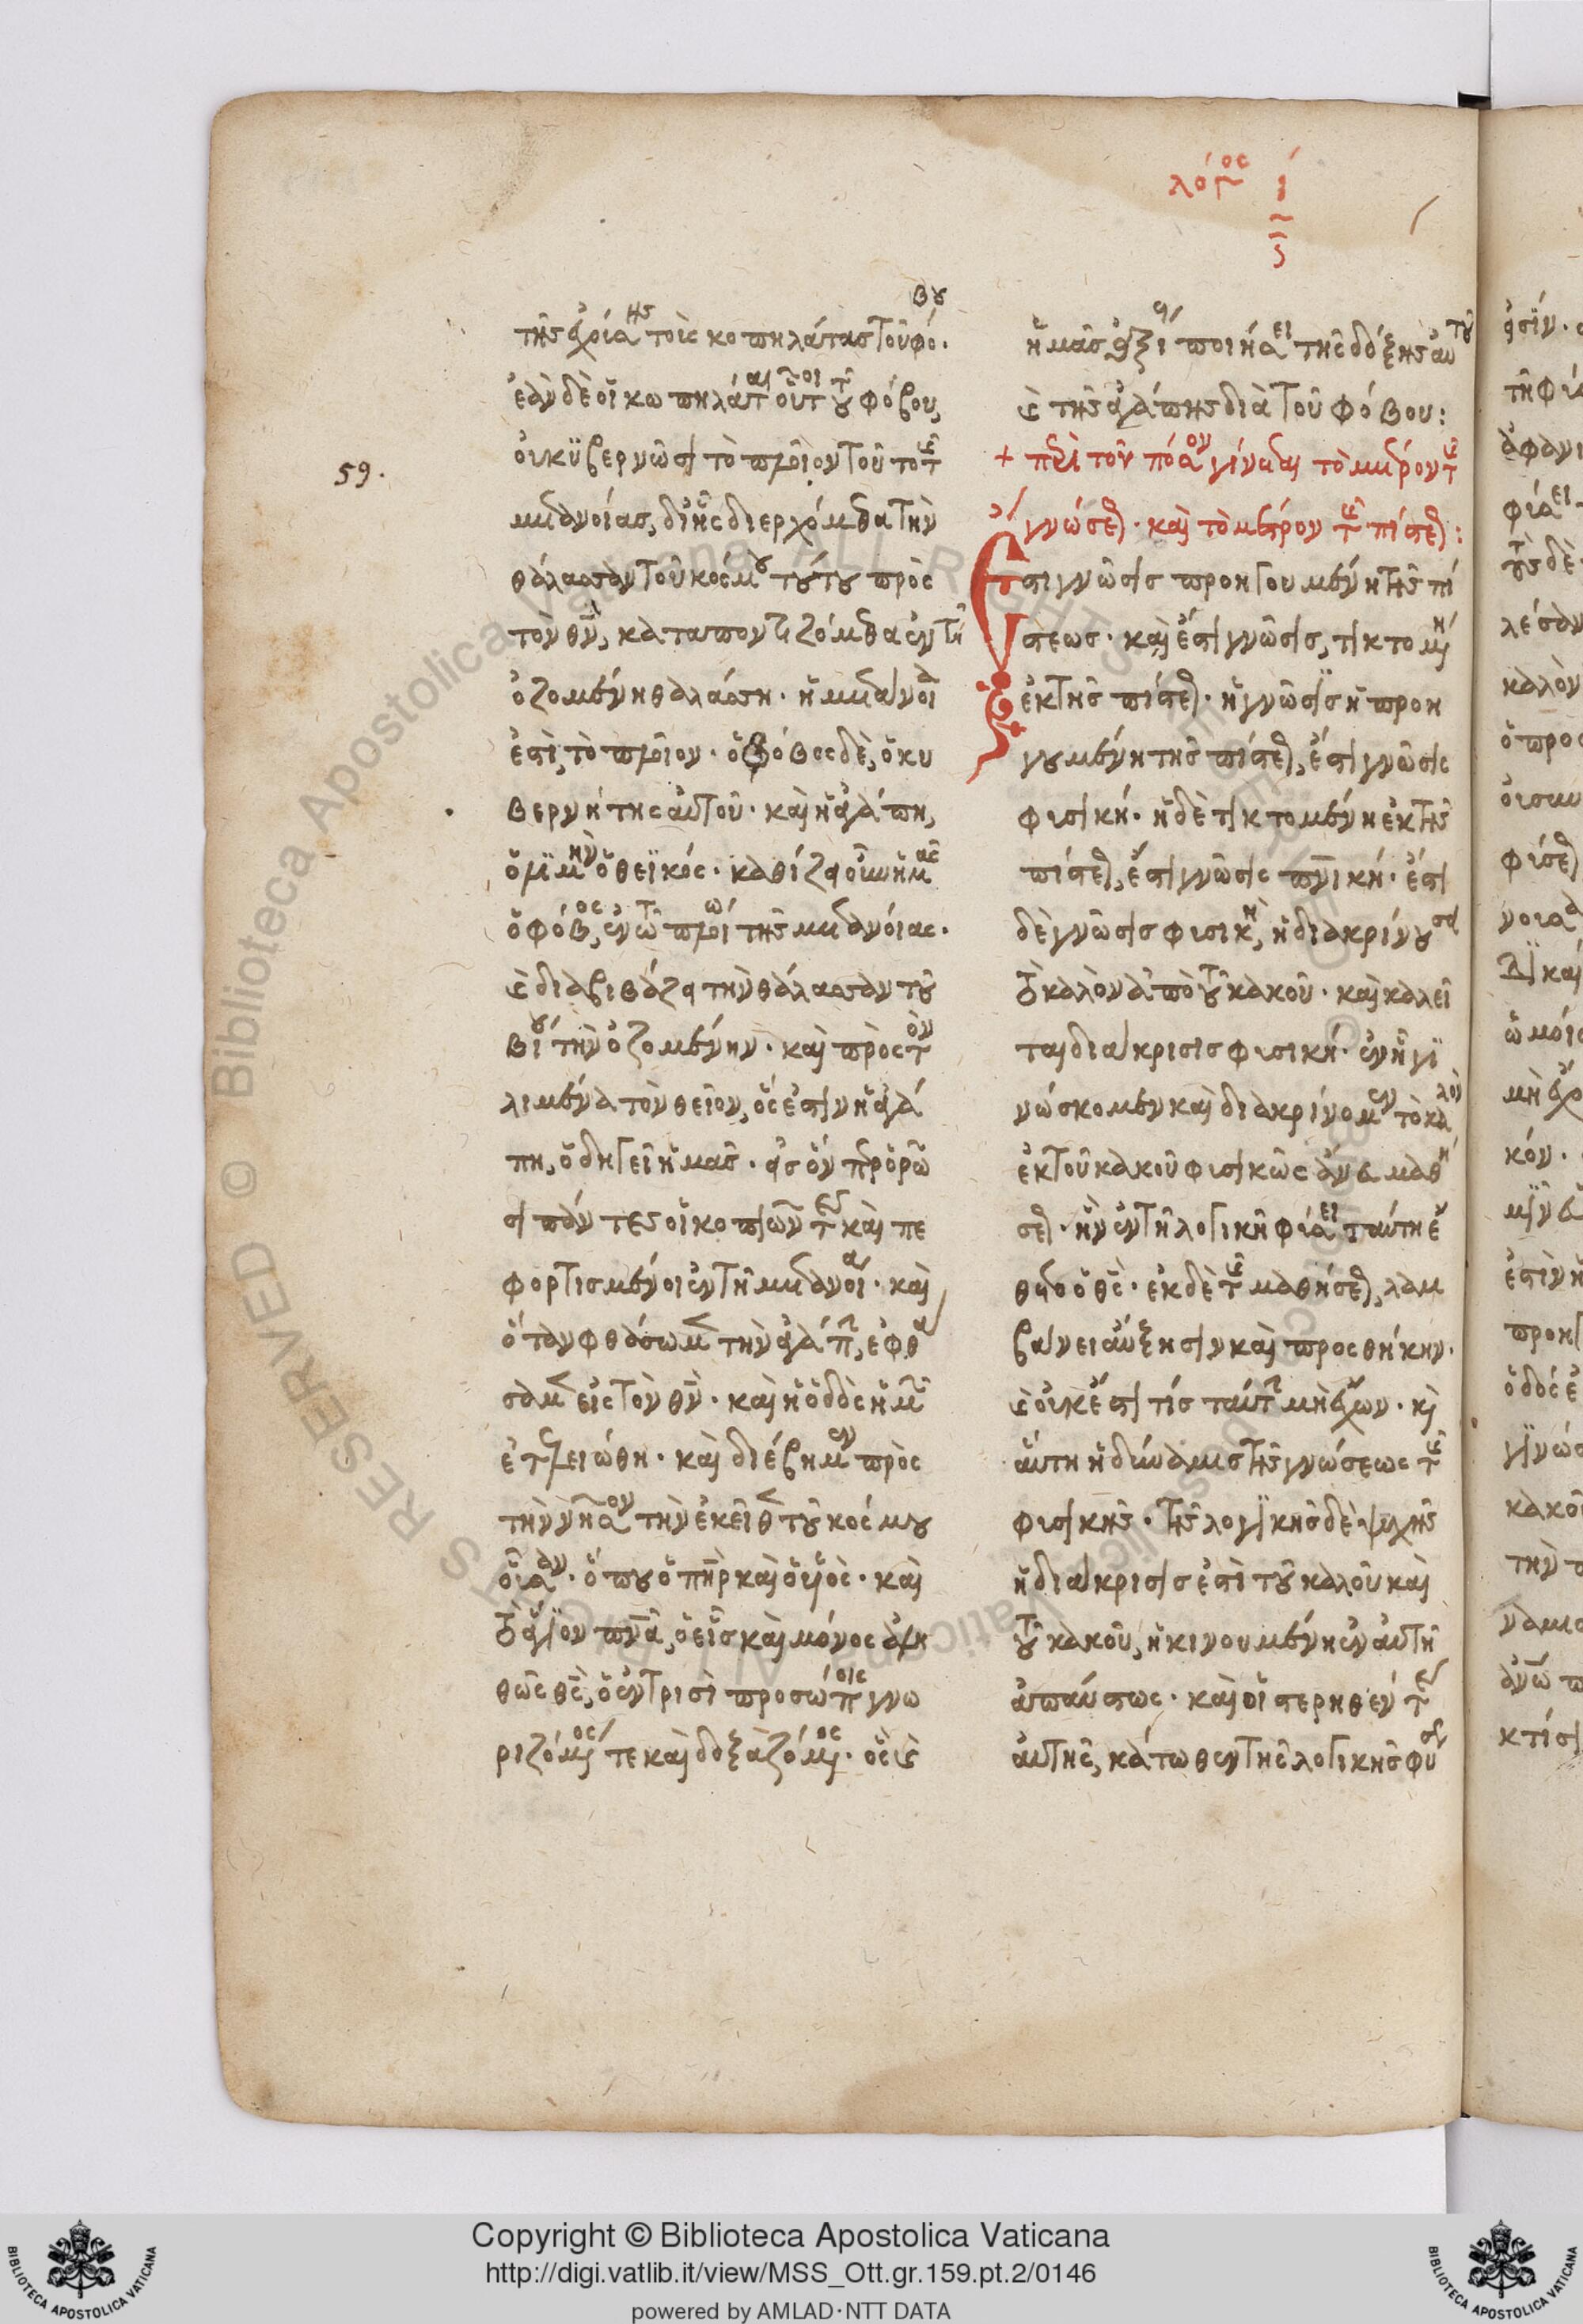 λόγος ί
ς
τῆς ἀχρίας τοῖς κοπηλάτας τοῦ φόβου
ἐὰν δὲ οἱ κωπηλάται οὗτοι τοῦ φόβου,
οὐ κυβερνῶσι τὸ πλοῖον τοῦτο τῆς
59.
μετανοίας, δι ἧς διερχόμεθα τὴν
θάλασσαν τοῦ κόσμου τούτου πρὸς
τὸν θν, καταποντιζόμεθα ἐν τῇ
ὀζομένη θαλάσση. ἡ μετάνοιά
ἐστι, τὸ πλοῖον. ὁ φόβος δὲ, ὁ κυ
βερνήτης αὐτοῦ. καὶ ἡ ἀγάπη,
ὁ λιμὴν ὁ θεϊκός. καθίζει οὖν ἡμᾶς
ὁ φόβος, ἐν τῶ πλοίω τῆς μετανοίας.
καὶ διαβιβάζει τὴν θάλασσαν τοῦ
βίου τὴν ὀζομένην. καὶ πρὸς τὸν
λιμένα τὸν θεῖον, ὅς ἐστιν ἡ ἀγά
πη, ὁδηγεῖ ἡμᾶς. εἰς ὃν προορῶ
σι πάντες οἱ κοπιῶντες καὶ πε
φορτισμένοι ἐν τῇ μετανοία. καὶ
ὅταν φθάσωμεν τὴν ἀγάπην, ἐφθά
σαμεν εἰς τὸν θν. καὶ ἡ ὁδὸς ἡμῶν
ἐτελειώθη. καὶ διέβημεν πρὸς
τὴν νῆσον τὴν ἐκεῖθεν τοῦ κόσμου
οὖσαν. ὅπου ὁ πηρ καὶ ὁ υἱὸς. καὶ
τὸ ἅγιον πνα, ὁ εἷς καὶ μόνος ἀλη
θῶς θς, ὁ ἐν τρισὶ προσώποις γνω
ριζόμενός τε καὶ δοξαζόμενος. ὃς καὶ
ἡμᾶς ἀξίους ποιήσει τῆς δόξης αὐτοῦ
καὶ τῆς ἀγάπης διὰ τοῦ φόβου:
+ περὶ τοῦ πόσον γίνεται τὸ μέτρον τῆς
γνώσεως. καὶ τὸ μέτρον τῆς πίστεως:
Ἔστι γνῶσις προηγουμένη τῆς πί
στεως. καὶ ἔστι γνῶσις, τικτομένη
ἐκ τῆς πίστεως. ἡ γνῶσις ἡ προη
γουμένη τῆς πίστεως, ἔστι γνῶσις
φυσική. ἡ δὲ τικτομένη ἐκ τῆς
πίστεως, ἔστι γνῶσις πνική. ἔστι
δὲ γνῶσις φυσικὴ, ἡ διακρίνουσα
τὸ καλὸν ἀπὸ τοῦ κακοῦ. καὶ καλεῖ
ται διάκρισις φυσική. ἐν ᾗ γι
νώσκομεν καὶ διακρίνομεν τὸ καλὸν
ἐκ τοῦ κακοῦ φυσικῶς ἄνευ μαθή
σεως. ἣν ἐν τῇ λογικῇ φύσει ταύτῃ ἔ
θετο ὁ θς. ἐκ δὲ τῆς μαθήσεως, λαμ
βάνει αὔξησιν καὶ προσθήκην.
καὶ οὐκ ἔστι τίς ταύτην μὴ ἔχων. καὶ
αὕτη ἡ δύναμις τῆς γνώσεως τῆς
φυσικῆς. τῆς λογικῆς δὲ ψυχῆς
ἡ διάκρισις ἐστὶ τοῦ καλοῦ καὶ
τοῦ κακοῦ, ἡ κινουμένη ἐν αὐτῇ
ἀπαύστως. καὶ οἱ στερηθέντες
αὐτῆς, κάτωθεν τῆς λογικῆς φύσε
Copyright © Biblioteca Apostolica Vaticana
http://digi.vatlib.it/view/MSS_Ott.gr.159.pt.2/0146
powered by AMLAD·NTT DATA